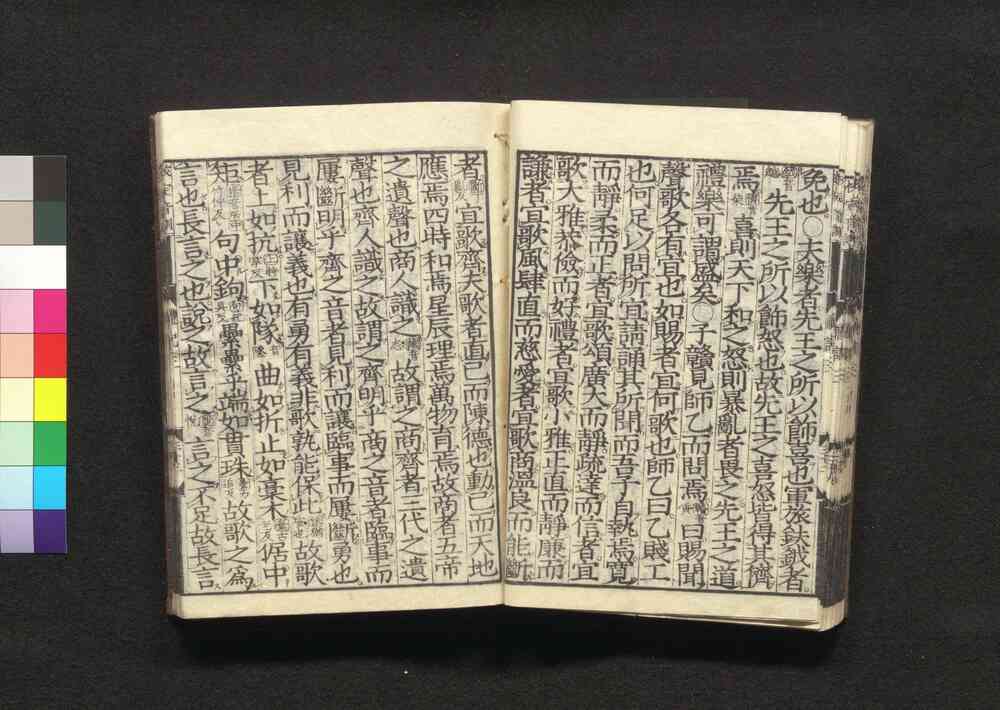 免也○夫樂者先王之所以飾喜也軍旅鈇鉞者
先王之所以飾怒也故先王之喜怒皆得其儕
焉喜則天下和之怒則暴亂者畏之先王之道
禮樂可謂盛矣○子贛見師乙而問焉曰賜聞
聲歌各有宜也如賜者宜何歌也師乙曰乙賤工
也何足以問所宜請誦其所聞而吾子自執焉寬
而靜柔而正者宜歌頌廣大而靜疏達而信者宜
歌大雅恭儉而好禮者宜歌小雅正直而靜廉而
謙者宜歌風肆直而慈愛者宜歌商溫良而能斷
者宜歌齊夫歌者直己而陳德也動己而天地
應焉四時和焉星辰理焉萬物育焉故商者五帝
之遺聲也商人識之故謂之商齊者三代之遺
聲也齊人識之故謂之齊明乎商之音者臨事而
屢斷明乎齊之音者見利而讓臨事而屢斷勇也
見利而讓義也有勇有義非歌孰能保此故歌
者上如抗下如隊曲如折止如槀木倨中
矩句中鉤纍纍乎端如貫珠故歌之爲
言也長言之也說之故言之言之不足故長言